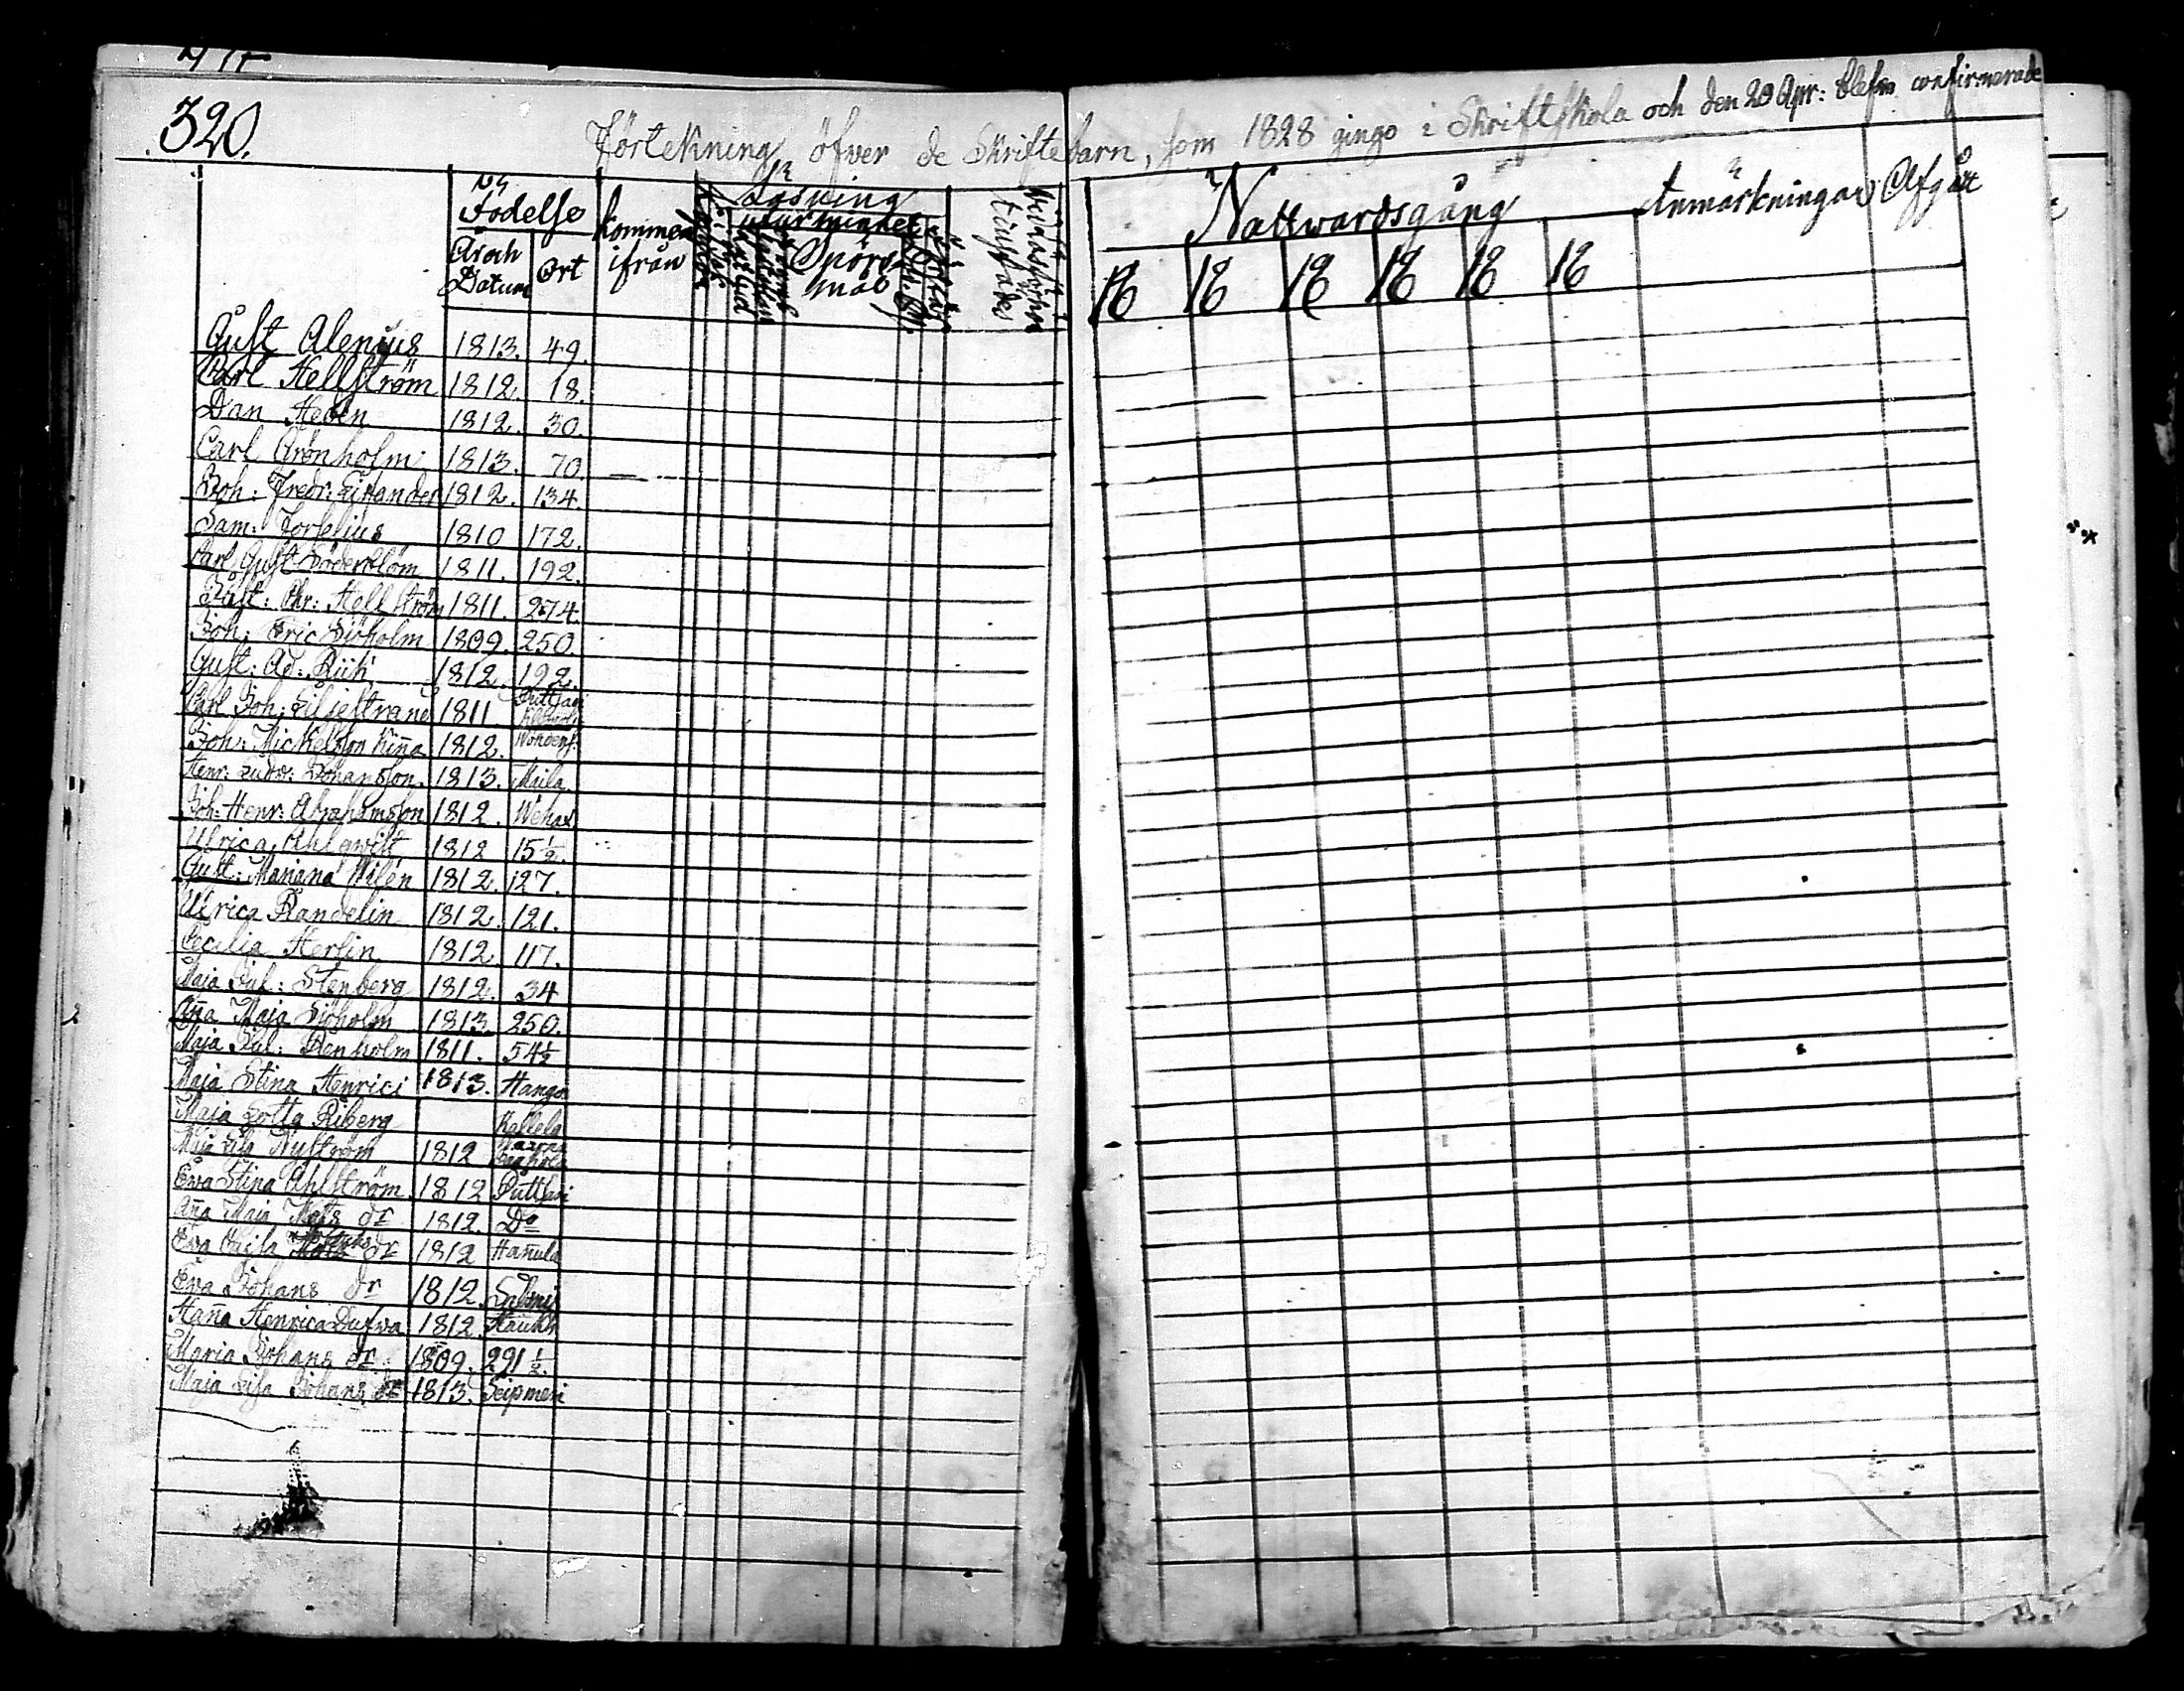 320.
Förtekning öfver de Skriftebarn, som 1828 gingo i Skriftskola och den 20 Apr: blefvo confirmerade
Födelse
År och Datum
Ort
kommen ifrån
Läsning
utur minnet
Spörsmål
Nattwardsgång
Anmärkningar
Afgått
18 18 18 18 18 18
Gust Alenius 1813. 49.
Carl Hellström 1812. 18.
Dan Heden 1812. 30.
Carl Grönholm 1813. 70.
Joh: Fredr: 1812. 134.
Sam: Forselius 1810 172.
Carl Gust Söderblom 1811. 192.
Gust: Chr: Hellström 1811. 274.
Joh: Eric Siöholm 1809. 250.
Gust: Ad: 1812. 192.
Carl Joh: Liljestrand 1811
Joh: Mickelsson 1812.
Henr: Ludv: Johansson. 1813. Maila
Joh: Henr: Abrahamsson 1812.
Ulrica Ahlqwist 1812 15½.
Gust: Mariana Wilén 1812. 127.
Ulrica Randelin 1812. 121.
Cecilia Herlin 1812. 117.
Maja Jul: Stenberg 1812. 34
Aña Maja Siöholm 1813. 250.
Maja Jul: Renholm 1811. 54½
Maja Stina Henrici 1813. Hango
Maja Lotta Riberg Kallela
Maja Lisa Nyström 1812
Ewa Stina Ahlström 1812 Puttsari
Aña Maja Mats dr 1812. Do
Ewa Cajsa dr 1812 Hañula
Ewa Johans dr 1812. Salmis
Haña Henrica Dufva 1812.
Maria Johans dr 1809. 291½
Maja Lisa Johans dr 1813. Seipmeri